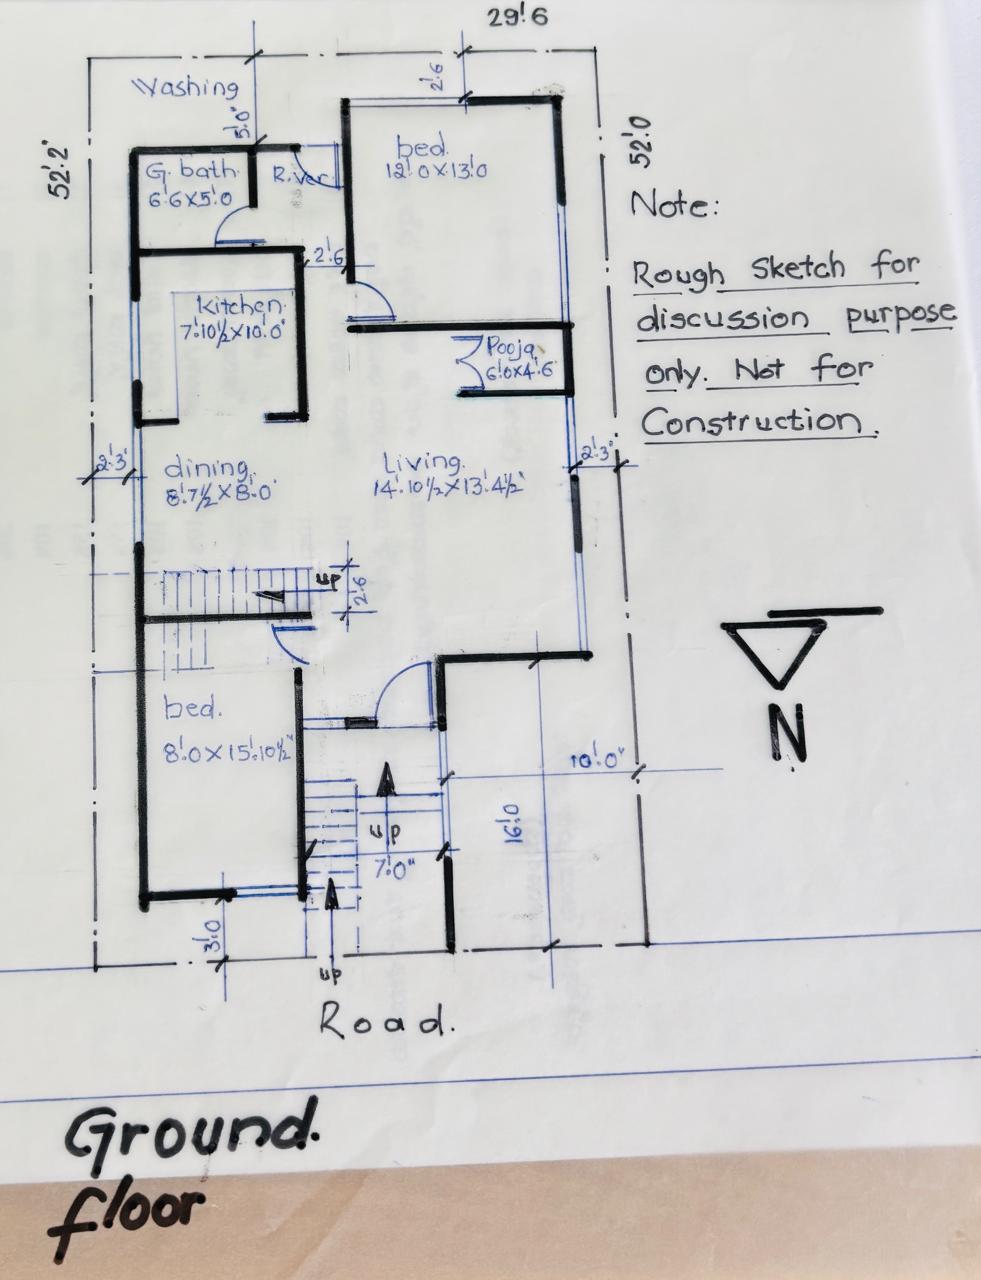 29'6
Washing
2'6
5'0"
52'2"
52'0
bed.
12'0X13'0
G. bath
6'6X5'0
R.iver
Note:
2'6
Rough Sketch for
discussion purpose
only. Not for
Construction.
Kitchen
7'10½X10'0"
Pooja
6'0X4'6
2'3"
dining.
8'7½X8'0"
Living.
14'10½X13'4½"
2'3"
UP
2'6
bed.
8'0X15'10½"
N
10'0"
16'0
UP
7'0"
3'0
UP
Road.
Ground.
floor